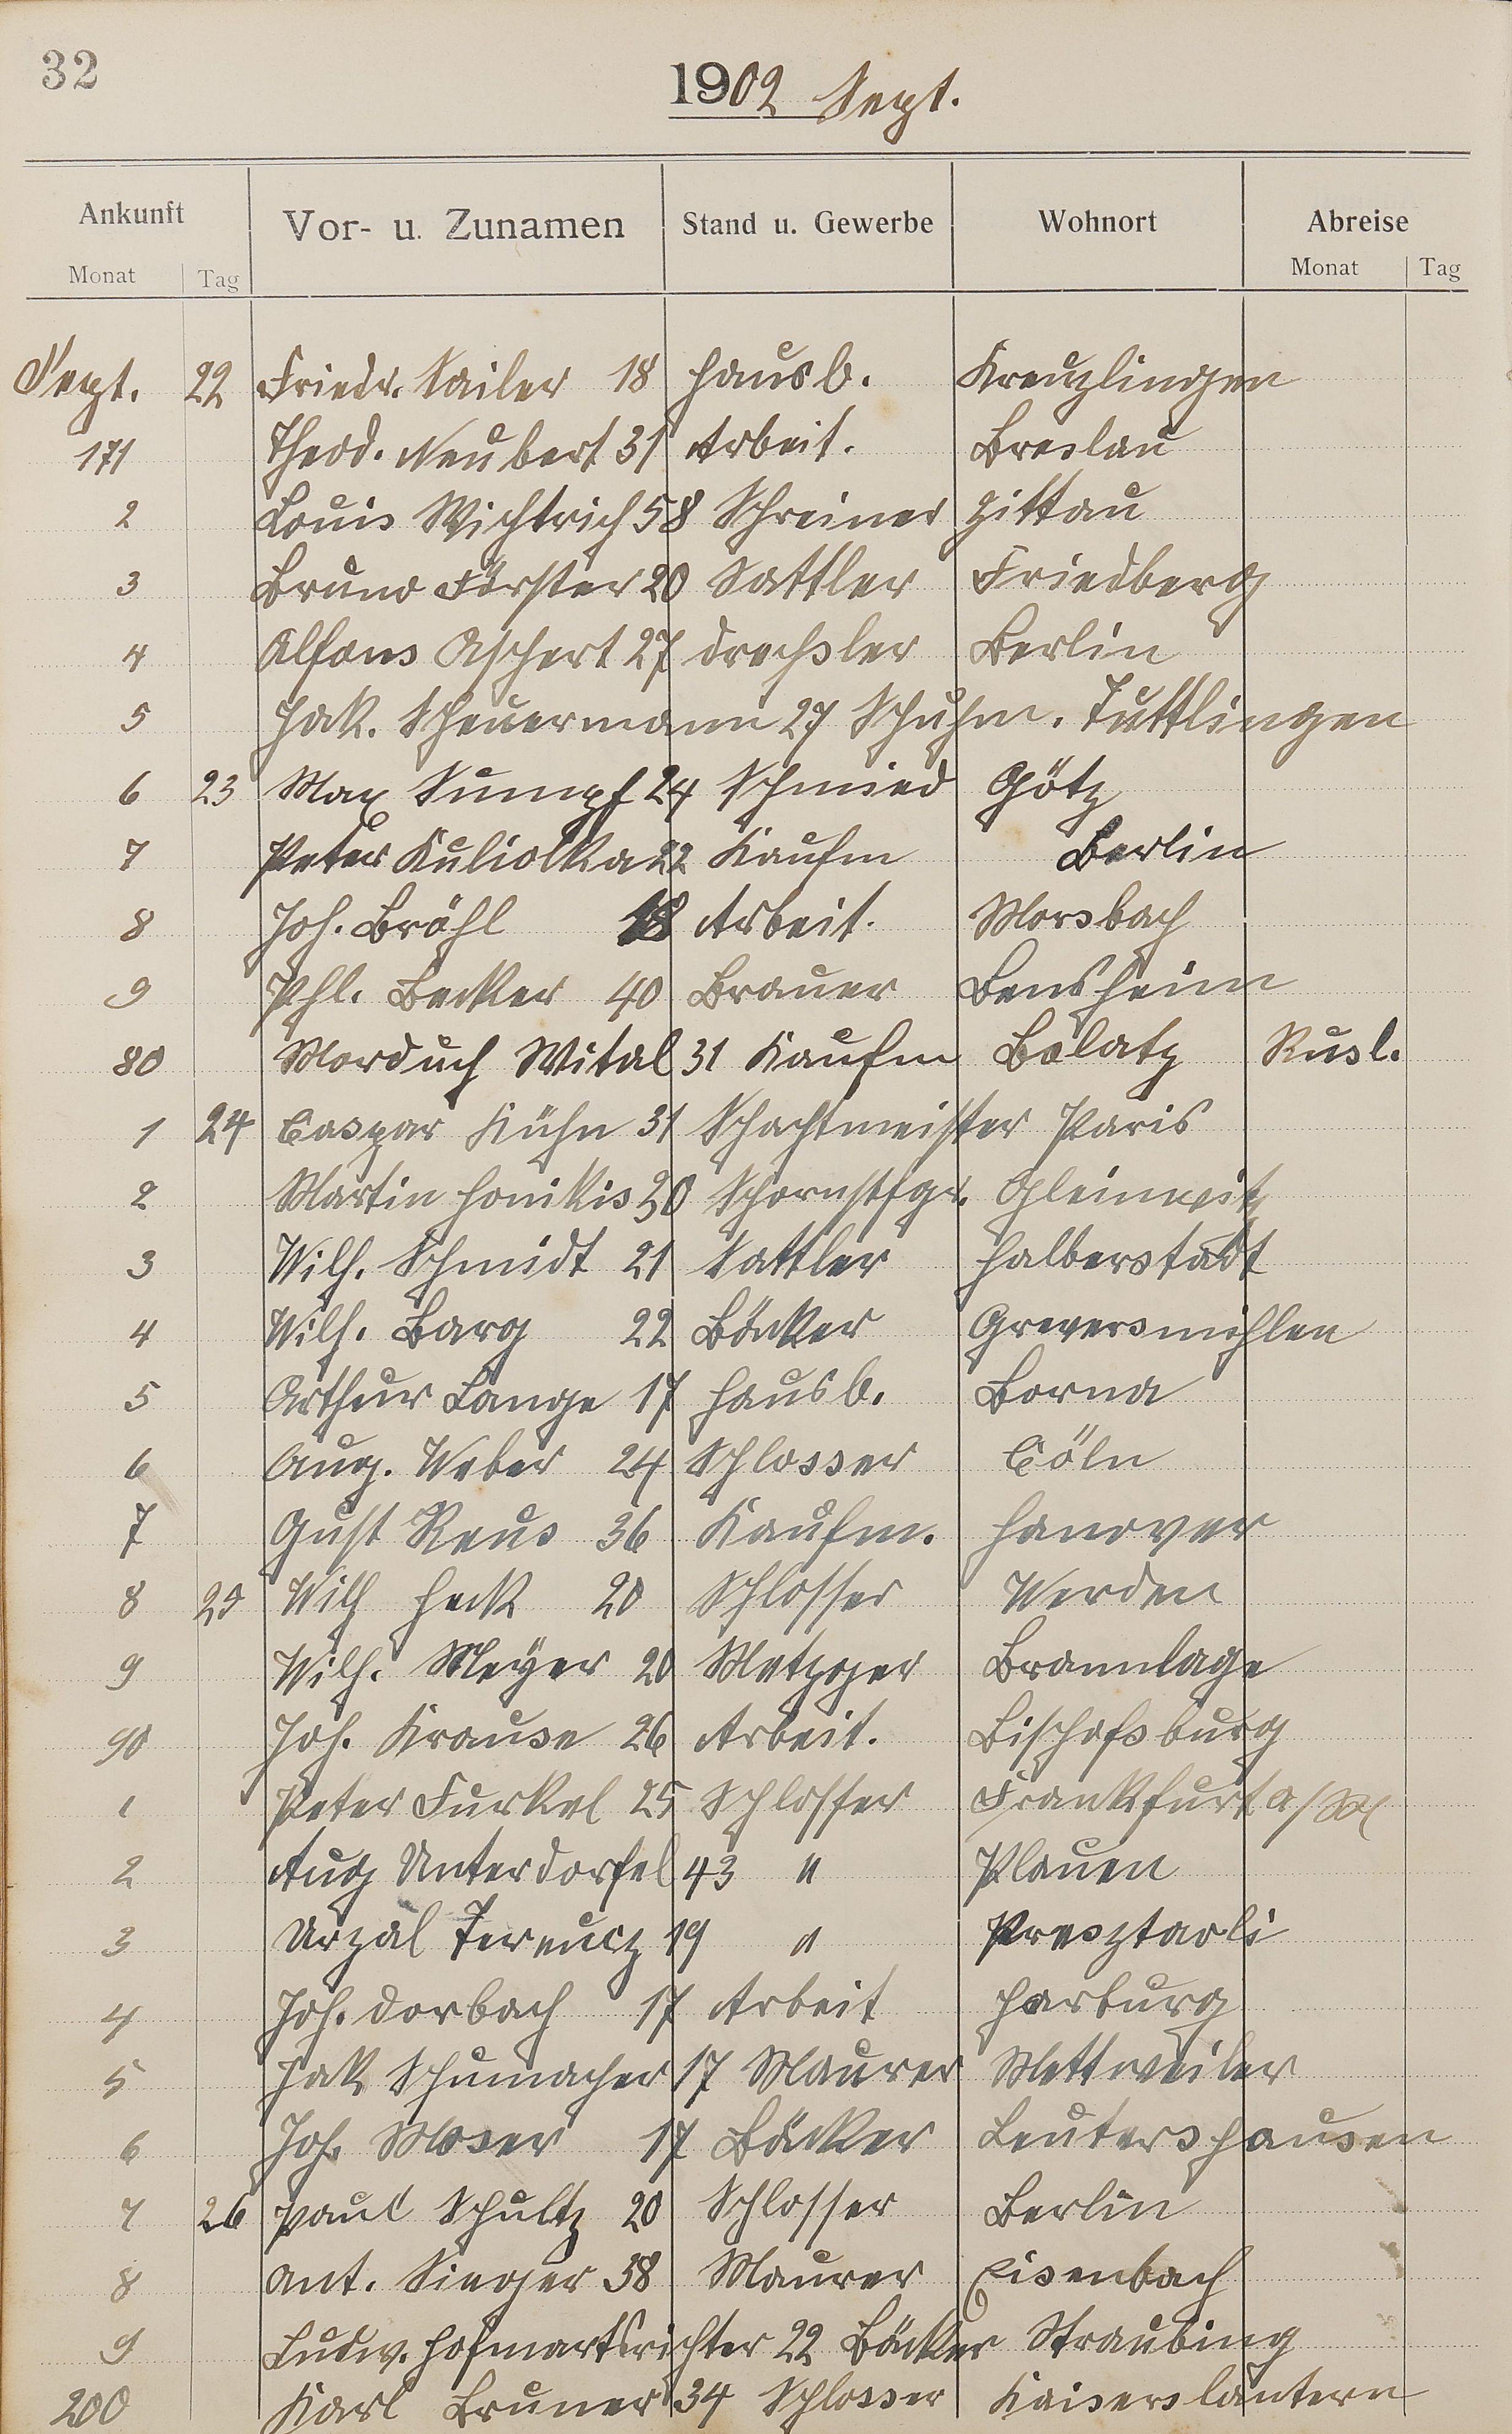 32
1902 Sept.
Ankunft Vor- u. Zunamen Stand u. Gewerbe Wohnort Abreise
Monat Tag Monat Tag
Sept. 22 Friedr. Sailer 18 Hausb. Kreuzlingen
171 Theod. Neubert 31 Arbeit. Breslau
2 Louis Wichtrich 58 Schreiner Zittau
3 Bruno Förster 20 Sattler Friedberg
4 Alfons Aschert 27 Drechsler Berlin
5 Jak. Scheuermann 27 Schuhm. Tuttlingen
6 23 Max Sumpf 24 Schmied Götz
7 Peter Kuliolka 22 Kaufm Berlin
8 Joh. Bröhl 18 Arbeit. Morsbach
9 Phl. Becker 40 Brauer Bensheim
80 Morduch Wital 31 Kaufm Bolatz Rusl.
1 24 Caspar Kühn 31 Schachtmeister Paris
2 Martin Honikis 30 Schornstfgr. Gleinwitz
3 Wilh. Schmidt 21 Sattler Halberstadt
4 Wilh. Barg 22 Bäcker Greversmühlen
5 Arthur Lange 17 Hausb. Borna
6 Aug. Weber 24 Schlosser Cöln
7 Gust Reus 36 Kaufm. Hanover
8 25 Wilh Heck 20 Schlosser Werden
9 Wilh. Meyer 20 Metzger Braunlage
90 Joh. Krause 26 Arbeit. Bischofsburg
1 Peter Furkel 25 Schlosser Frankfurt a/M
2 Aug Unterdorfel 43 " Plauen
3 19 "
4 Joh. Dorbach 17 Arbeit Harburg
5 Jak Schumacher 17 Maurer Mettweiler
6 Joh. Moser 17 Bäcker Leutershausen
7 26 Paul Schultz 20 Schlosser Berlin
8 Ant. Sieger 38 Maurer Eisenbach
9 Ludw. Hofmartsrichter 22 Bäcker Straubing
200 Karl Bruner 34 Schlosser Kaiserslautern